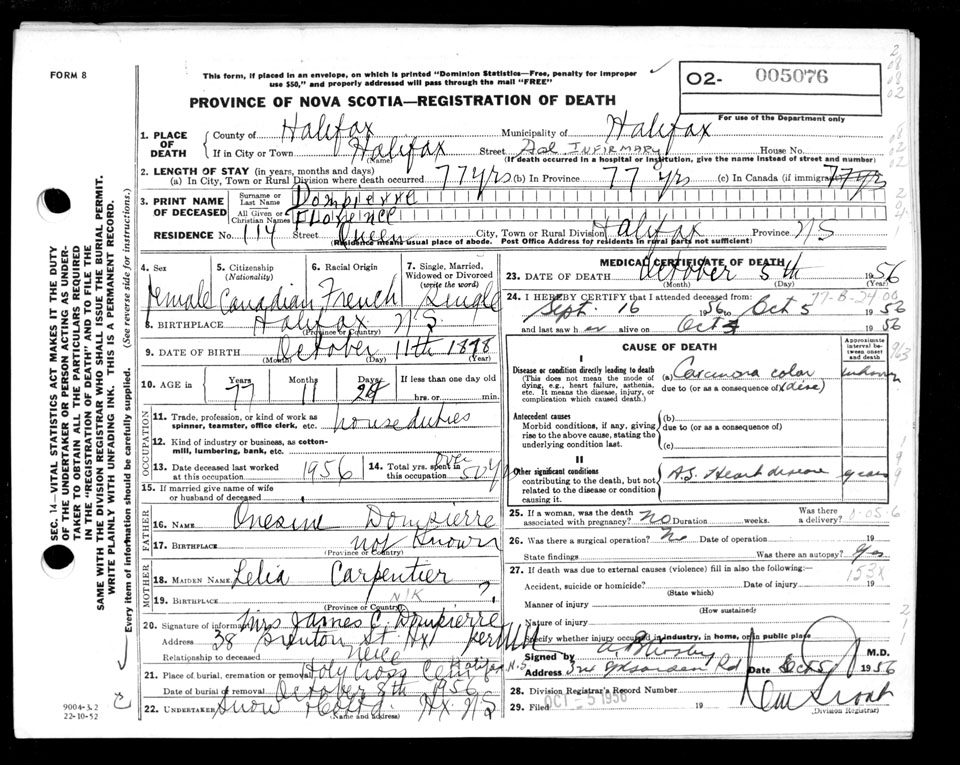 FORM 8
This form, if placed in an envelope, on which is printed "Dominion Statistics—Free, penalty for improper
use $50," and properly addressed will pass through the mail "FREE"
02- 005076
For use of the Department only
PROVINCE OF NOVA SCOTIA—REGISTRATION OF DEATH
1. PLACE OF DEATH
County of Halifax Municipality of Halifax
If in City or Town Halifax Street INFIRMARY House No.
(Name) (If death occurred in a hospital or institution, give the name instead of street and number)
2. LENGTH OF STAY (in years, months and days)
(a) In City, Town or Rural Division where death occurred 77 yrs (b) In Province 77 yrs (c) In Canada (if immigrant) 77 yrs
3. PRINT NAME OF DECEASED
Surname or Last Name Dompierre
All Given or Christian Names Florence
RESIDENCE No. 114 Street Queen City, Town or Rural Division Halifax Province N/S
(Residence means usual place of abode. Post Office Address for residents in rural parts not sufficient)
4. Sex 5. Citizenship (Nationality) 6. Racial Origin 7. Single, Married, Widowed or Divorced (write the word)
female Canadian French Single
8. BIRTHPLACE Halifax N/S.
(Province or Country)
9. DATE OF BIRTH October 11th 1878
(Month) (Day) (Year)
10. AGE in Years 77 Months 11 Days 24 If less than one day old hrs. or min.
OCCUPATION
11. Trade, profession, or kind of work as spinner, teamster, office clerk, etc. house duties
12. Kind of industry or business, as cotton-mill, lumbering, bank, etc.
13. Date deceased last worked at this occupation 1956 14. Total yrs. spent in this occupation over 50 yrs
15. If married give name of wife or husband of deceased
FATHER
16. NAME Onesime Dompierre
17. BIRTHPLACE not known
(Province or Country)
MOTHER
18. MAIDEN NAME Lelia Carpentier
19. BIRTHPLACE N/K ?
(Province or Country)
20. Signature of informant Mrs James C. Dompierre
Address 38 Brenton St Hx
Relationship to deceased niece
21. Place of burial, cremation or removal Holy Cross Cem Halifax N.S
Date of burial or removal October 8th 1956
22. UNDERTAKER Snow Hx. N/S
(Name and address)
9004-3.2
22-10-52
MEDICAL CERTIFICATE OF DEATH
23. DATE OF DEATH October 5th 1956
(Month) (Day) (Year)
24. I HEREBY CERTIFY that I attended deceased from:
77-8-24 00
Sept. 16 1956 to Oct 5 1956
and last saw her alive on Oct 5 1956
CAUSE OF DEATH
Approximate interval between onset and death
I
Disease or condition directly leading to death
(This does not mean the mode of dying, e.g., heart failure, asthenia, etc. It means the disease, injury, or complication which caused death.)
(a) Carcinoma colon unknown
due to (or as a consequence of)
Antecedent causes
Morbid conditions, if any, giving rise to the above cause, stating the underlying condition last.
(b)
due to (or as a consequence of)
(c)
II
Other significant conditions
contributing to the death, but not related to the disease or condition causing it.
A.S. Heart disease years
25. If a woman, was the death associated with pregnancy? No Duration weeks. Was there a delivery?
26. Was there a surgical operation? No Date of operation 19
State findings Was there an autopsy? yes
27. If death was due to external causes (violence) fill in also the following:
153X
Accident, suicide or homicide? Date of injury 19
(State which)
Manner of injury
(How sustained)
Nature of injury
Specify whether injury occurred in industry, in home, or in public place
Signed by M.D.
Address Rd Date Oct 5 1956
28. Division Registrar's Record Number
29. Filed OCT - 5 1956 19
(Division Registrar)
SEC. 14—VITAL STATISTICS ACT MAKES IT THE DUTY
OF THE UNDERTAKER OR PERSON ACTING AS UNDER-
TAKER TO OBTAIN ALL THE PARTICULARS REQUIRED
IN THE "REGISTRATION OF DEATH" AND TO FILE THE
SAME WITH THE DIVISION REGISTRAR WHO SHALL ISSUE THE BURIAL PERMIT.
WRITE PLAINLY WITH UNFADING INK. THIS IS A PERMANENT RECORD.
Every item of information should be carefully supplied. (See reverse side for instructions.)